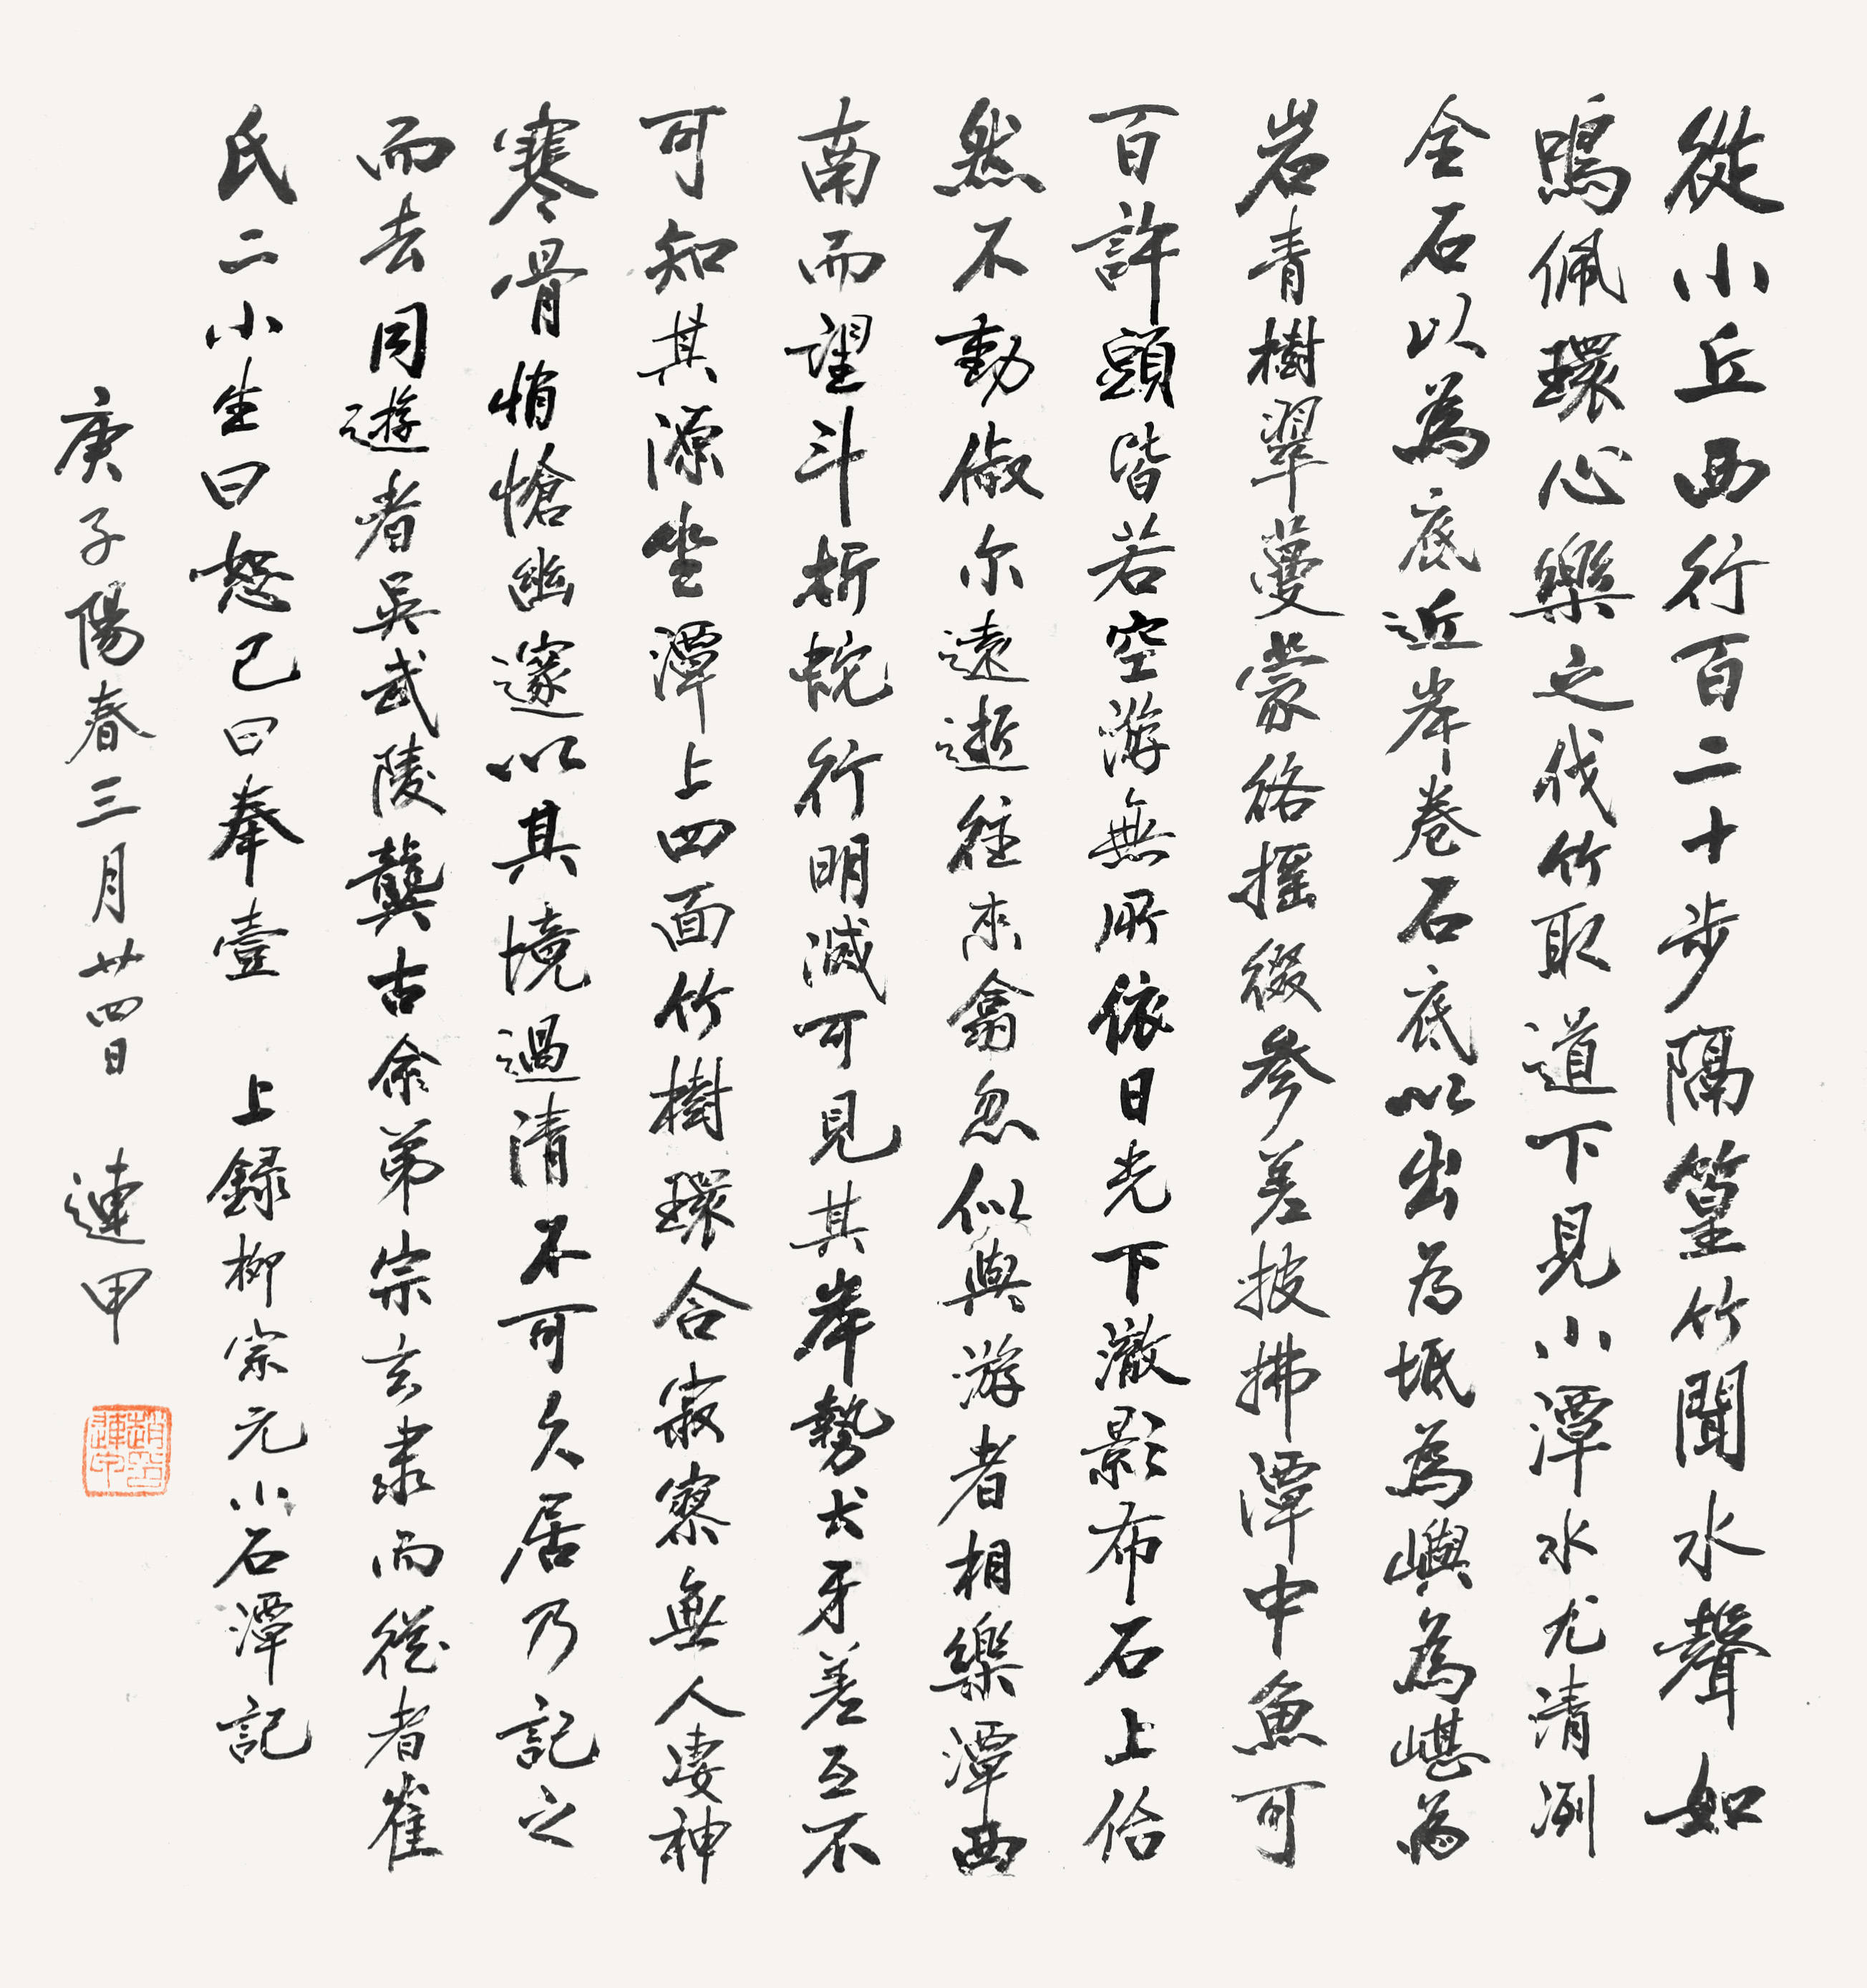 從小丘西行百二十步隔篁竹聞水聲如
鳴佩環心樂之伐竹取道下見小潭水尤清冽
全石以為底近岸卷石底以出為坻為嶼為嵁為
岩青樹翠蔓蒙络摇缀參差披拂潭中魚可
百許頭皆若空游無所依日光下澈影布石上佁
然不動俶尔遠逝往來翕忽似與游者相樂潭西
南而望斗折蛇行明滅可見其岸勢犬牙差互不
可知其源坐潭上四面竹樹環合寂寥無人凄神
寒骨悄愴幽邃以其境過清不可久居乃記之
而去同遊者吳武陵龔古余弟宗玄隶而從者崔
氏二小生曰恕己曰奉壹 上録柳宗元小石潭記
庚子陽春三月廿四日 連甲